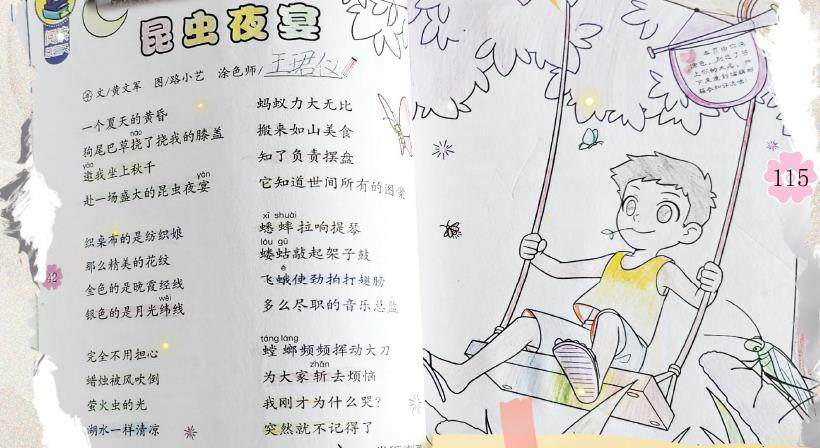 昆虫夜宴
文/黄文军 图/路小艺 涂色师/
一个夏天的黄昏
náo
狗尾巴草挠了挠我的膝盖
yāo
邀我坐上秋千
yàn
赴一场盛大的昆虫夜宴
织桌布的是纺织娘
那么精美的花纹
金色的是晚霞经线
wěi
银色的是月光纬线
完全不用担心
蜡烛被风吹倒
萤火虫的光
湖水一样清凉
蚂蚁力大无比
搬来如山美食
知了负责摆盘
它知道世间所有的图案
xī shuài
蟋蟀拉响提琴
lóu gū
蝼蛄敲起架子鼓
é
飞蛾使劲拍打翅膀
多么尽职的音乐总监
táng láng
螳螂频频挥动大刀
zhǎn
为大家斩去烦恼
我刚才为什么哭?
突然就不记得了
42
115